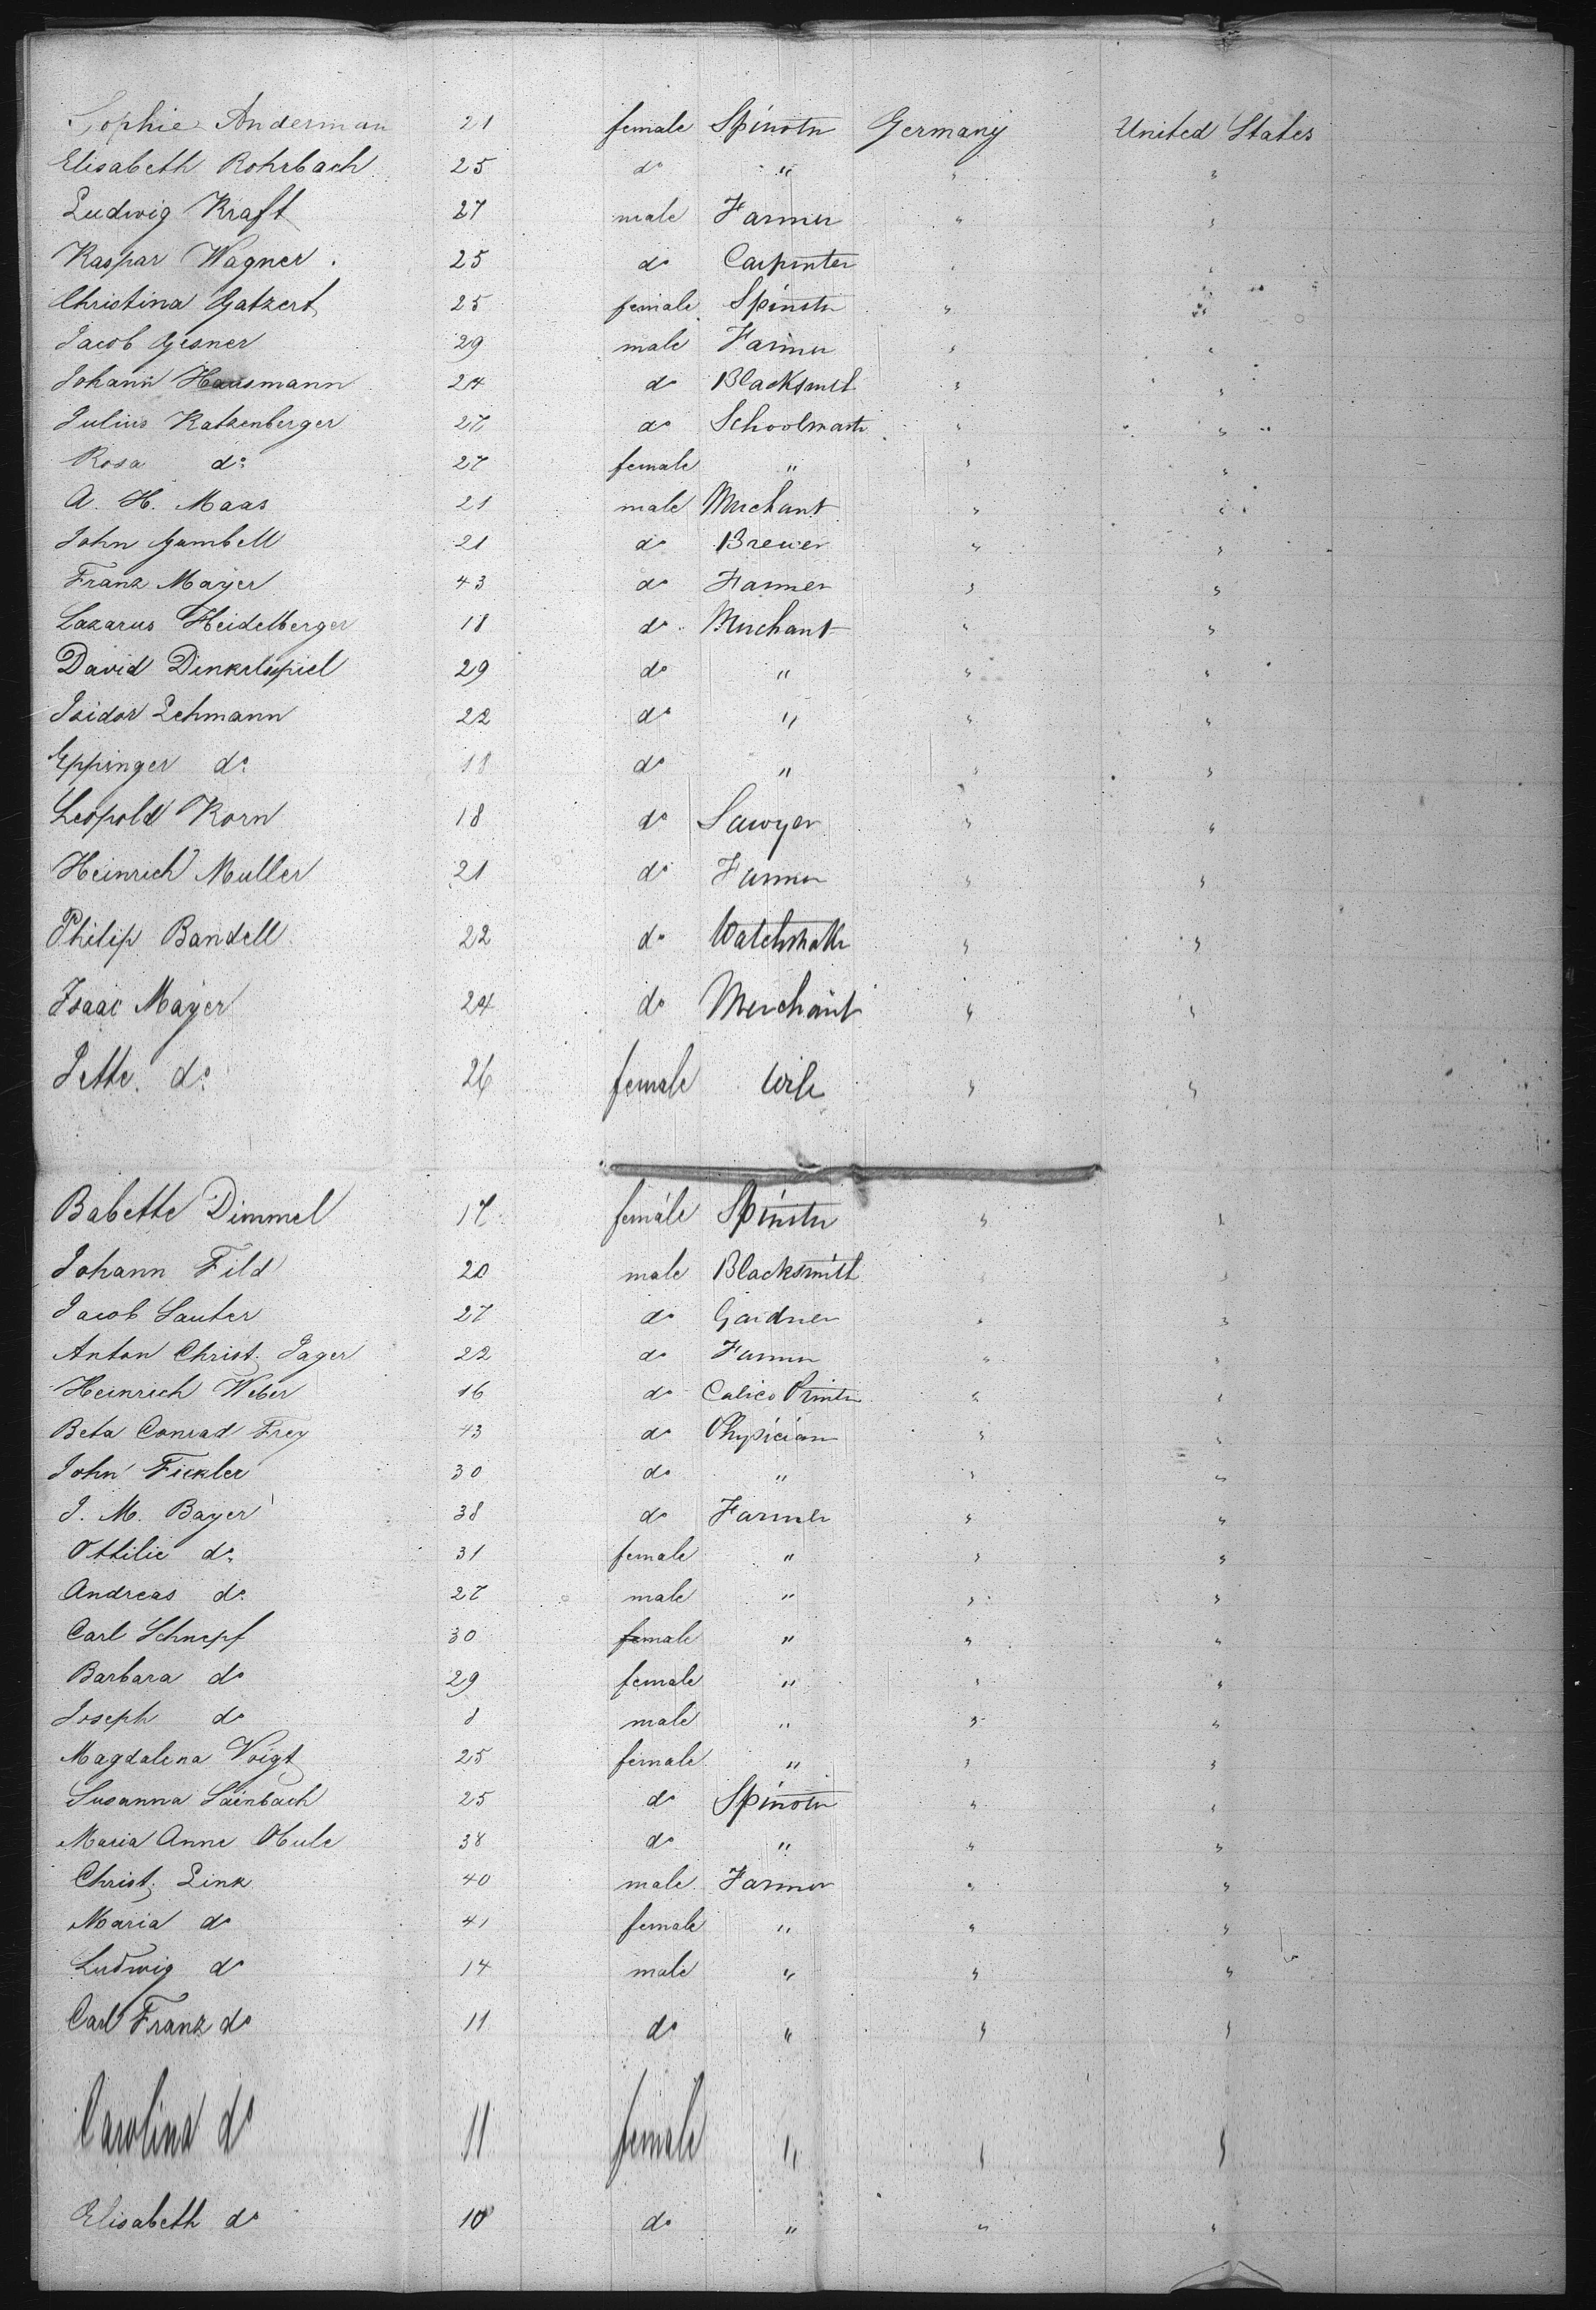 Sophie Anderman 21 female Spinstr Germany United States
Elisabeth Rohrbach 25 do " " "
Ludwig Kraft 27 male Farmer " "
Kaspar Wagner 25 do Carpenter " "
Christina Gatzert 25 female Spinstr " "
Jacob Gesner 29 male Farmer " "
Johann Hausmann 24 do Blacksmith " "
Julius Katzenberger 27 do Schoolmastr " "
Rosa do 27 female " " "
A. H. Maas 21 male Merchant " "
John Gumbell 21 do Brewer " "
Franz Mayer 43 do Farmer " "
Lazarus Heidelberger 18 do Merchant " "
David Dinkelspiel 29 do " " "
Isidor Lehmann 22 do " " "
Eppinger do 18 do " " "
Leopold Korn 18 do Sawyer " "
Heinrich Muller 21 do Farmer " "
Philip Bandell 22 do Watchmakr " "
Isaac Mayer 24 do Merchant " "
Jette do 26 female Wife " "
Babette Dimmel 17 female Spinstr " "
Johann Fild 20 male Blacksmith " "
Jacob Sauter 27 do Gardner " "
Anton Christ. Jager 22 do Farmer " "
Heinrich Weber 16 do Calico Printer " "
Beta Conrad Frey 43 do Physician " "
John Fickler 30 do " " "
J. M. Bayer 38 do Farmer " "
Ottilie do 31 female " " "
Andreas do 27 male " " "
Carl Schnepf 30 female " " "
Barbara do 29 female " " "
Joseph do 8 male " " "
Magdalena Voigt 25 female " " "
Susanna 25 do Spinstr " "
Maria Anne 38 do " " "
Christ. Link 40 male Farmer " "
Maria do 41 female " " "
Ludwig do 14 male " " "
Carl Franz do 11 do " " "
Carolina do 11 female " " "
Elisabeth do 10 do " " "